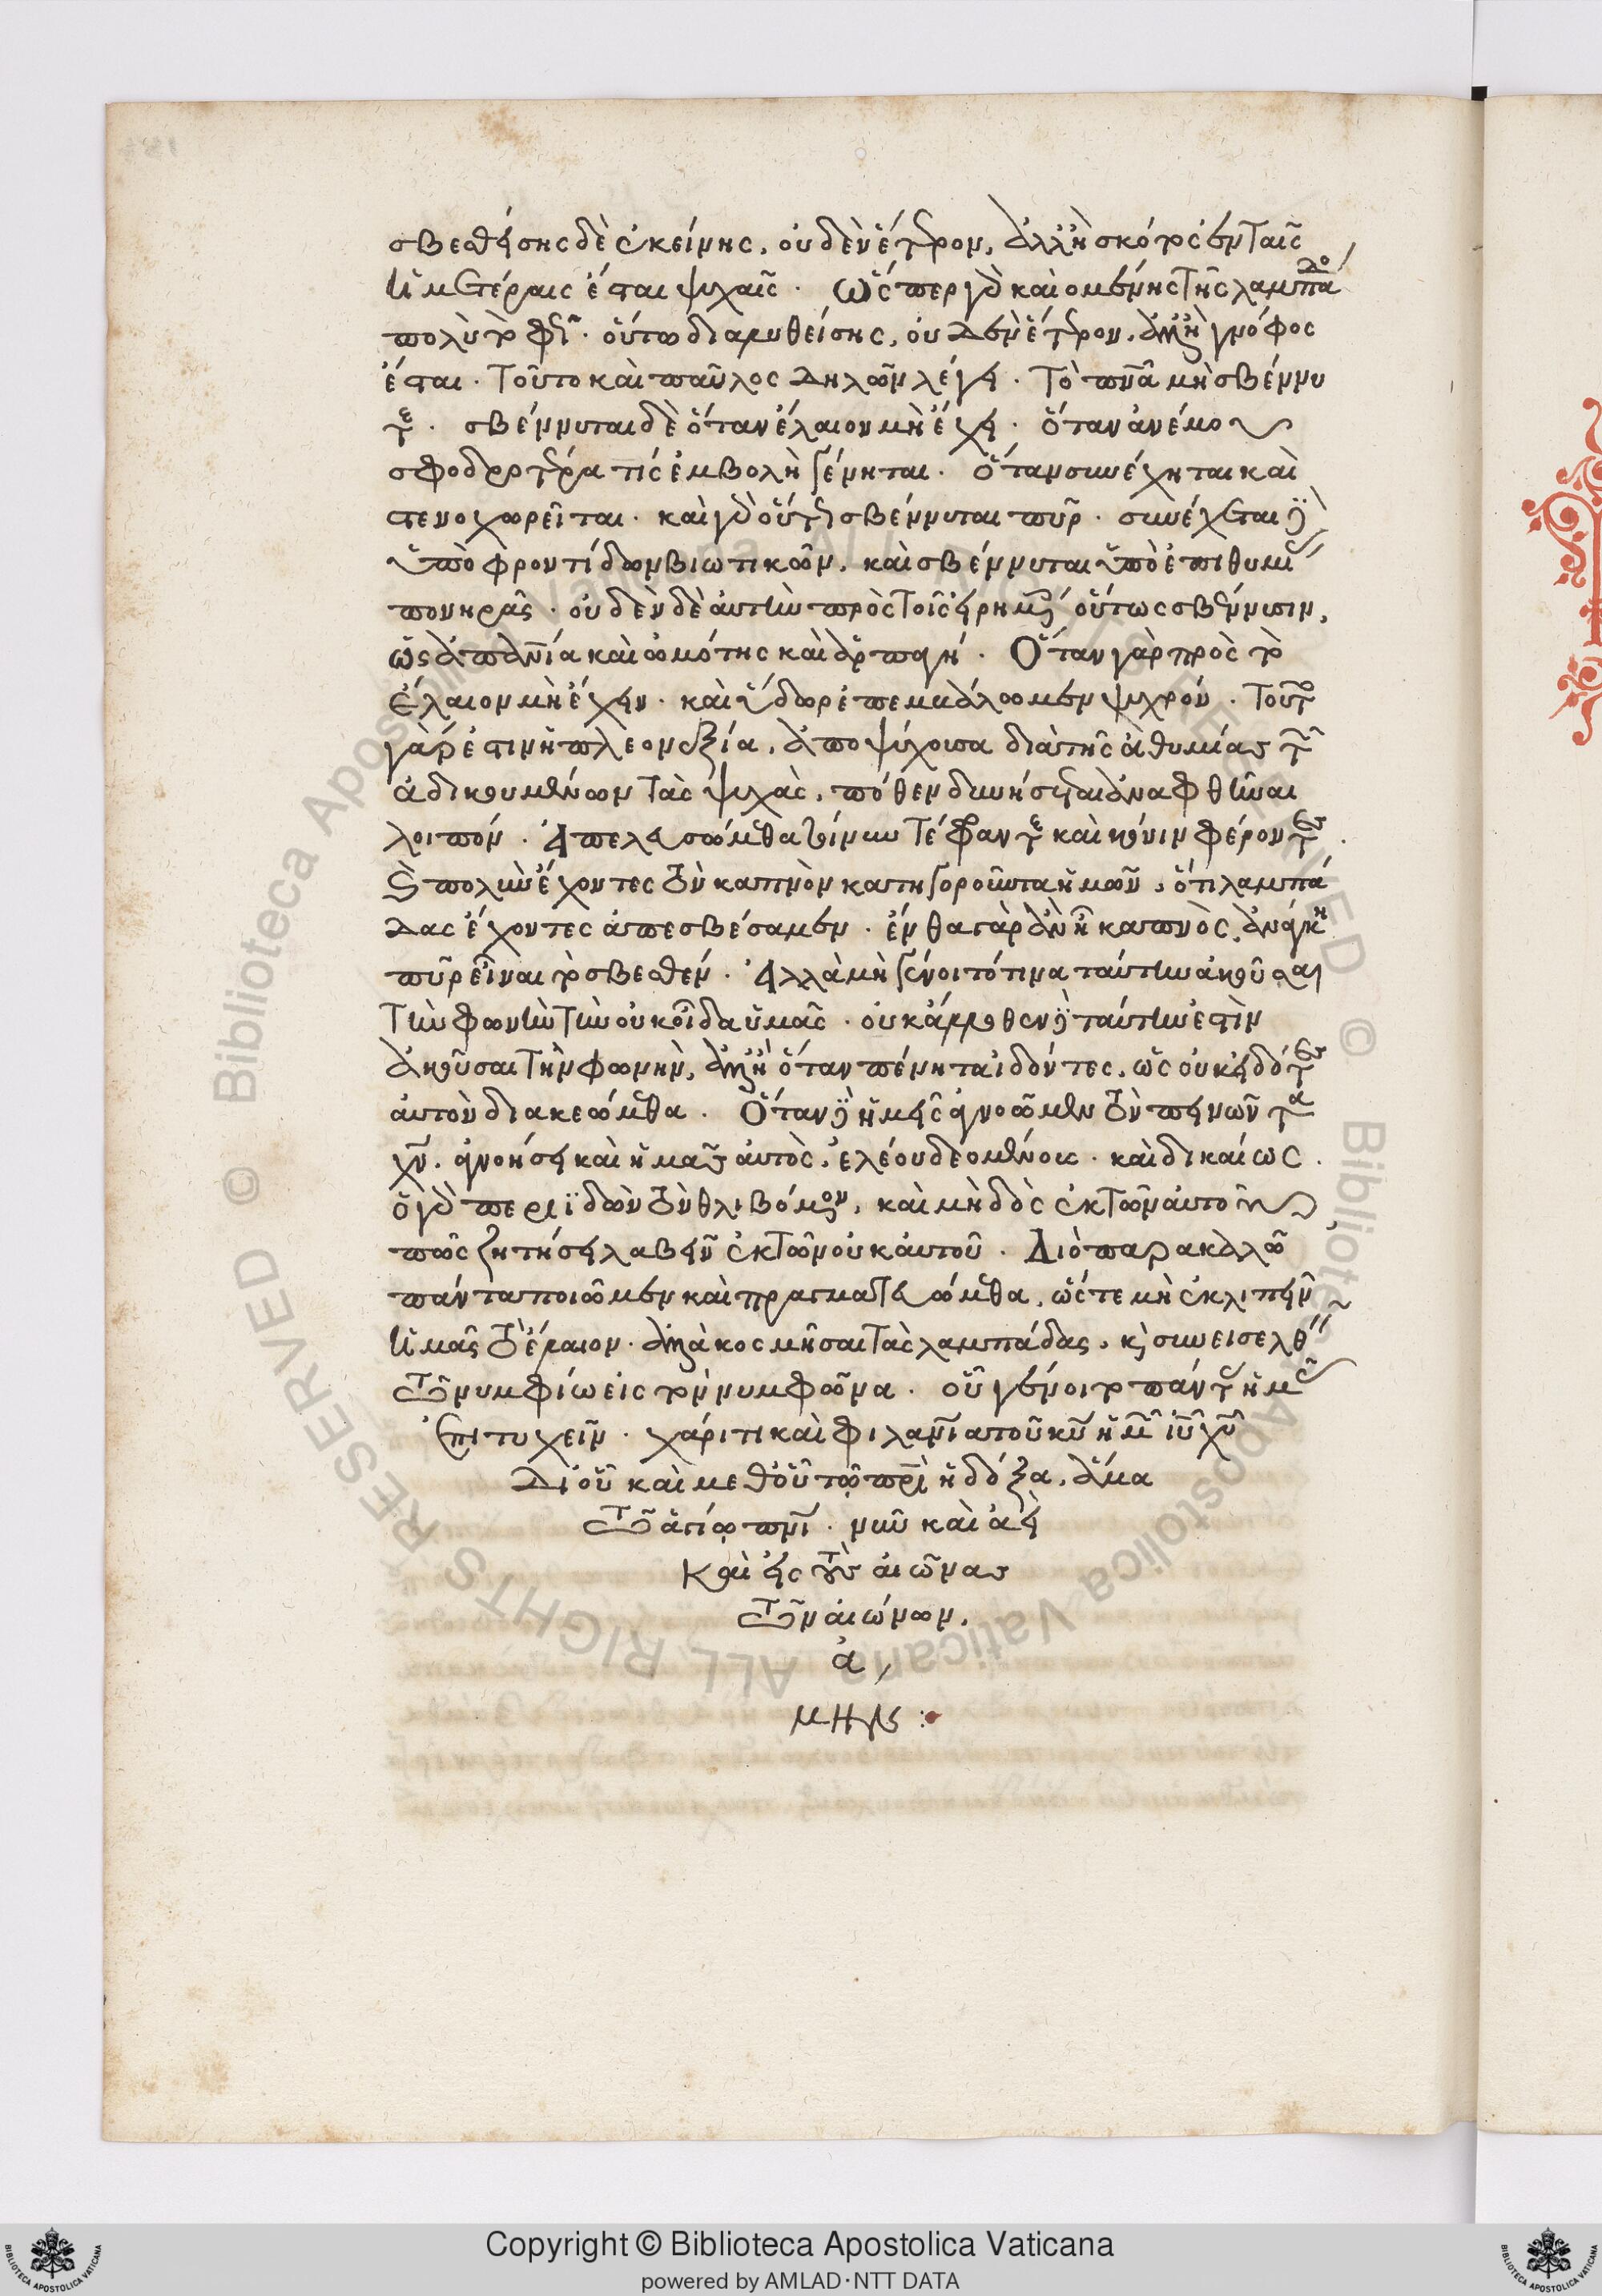 σβεσθείσης δὲ ἐκείνης, οὐδὲν ἕτερον, ἀλλ' ἢ σκότος ἐν ταῖς
ἡμετέραις ἔσται ψυχαῖς. Ὥσπερ γὰρ καιομένης τῆς λαμπάδο
πολὺ τὸ φῶς. οὕτω διαλυθείσης, οὐδὲν ἕτερον, ἀλλ' ἢ γνόφος
ἔσται. Τοῦτο καὶ παῦλος δηλῶν λέγει. Τὸ πνᾶ μὴ σβέννυ
τε. σβέννυται δὲ ὅταν ἔλαιον μὴ ἔχει. ὅταν ἀνέμου
σφοδροτέρα τίς ἐμβολὴ γένηται. Ὅταν συνέχηται καὶ
στενοχωρεῖται. καὶ γὰρ οὕτως σβέννυται πῦρ. συνέχεται δὲ
ὑπὸ φροντίδων βιωτικῶν, καὶ σβέννυται ὑπὸ ἐπιθυμί
πονηρᾶς. οὐδὲν δὲ αὐτὴν πρὸς τοῖς εἰρημένοις οὕτως σβέννυσιν,
ὡς ἀπανία καὶ ὠμότης καὶ ἁρπαγή. Ὅταν γὰρ πρὸς τὸ
ἔλαιον μὴ ἔχειν. καὶ ὕδωρ ἐπεμβάλωμεν ψυχρόν. Τοῦτο
γάρ ἐστιν ἡ πλεονεξία, ἀποψύχουσα διὰ τῆς ἀθυμίας τῶν
ἀδικουμένων τὰς ψυχὰς, πόθεν δυνήσεται ἀναφθῆναι
λοιπόν. Ἀπελευσώμεθα τέφραν τε καὶ κόνιν φέροντες.
καὶ πολὺν ἔχοντες τὸν καπνὸν κατηγοροῦντα ἡμῶν, ὅτι λαμπά
δας ἔχοντες ἀπεσβέσαμεν. ἔνθα γὰρ ἂν ᾖ καπνὸς, ἀνάγκη
πῦρ εἶναι τὸ σβεσθέν. Ἀλλὰ μὴ γένοιτό τινα ταύτην ἀκοῦσαι
τὴν φωνὴν τὴν οὐκ οἶδα ὑμᾶς. οὐκ ἄλλοθεν δὲ ταύτην ἐστὶν
ἀκοῦσαι τὴν φωνὴν, ἀλλ' ἢ ὅταν πένητα ἰδόντες, ὡς οὐκ εἰδότες
αὐτὸν διακεώμεθα. Ὅταν δὲ ἡμεῖς ἀγνοῶμεν τὸν πεινῶντα
χν, ἀγνοήσει καὶ ἡμᾶς αὐτὸς, ἐλέου δεομένοις. καὶ δικαίως.
ὁ γὰρ περιϊδὼν τὸν θλιβόμενον, καὶ μὴ δὸς ἐκ τῶν αὐτοῦ
πῶς ζητήσει λαβεῖν ἐκ τῶν οὐκ αὐτοῦ. Διὸ παρακαλῶ
πάντα ποιῶμεν καὶ πραγματευώμεθα, ὥστε μὴ ἐκλιπεῖν
ἡμᾶς τὸ ἔλαιον. ἀλλὰ κοσμῆσαι τὰς λαμπάδας, κὶ συνεισελθεῖν
τῶ νυμφίω εἰς τὸν νυμφῶνα. οὗ γένοιτο πάντας ἡμᾶς
ἐπιτυχεῖν. χάριτι καὶ φιλανία τοῦ κυ ἡμῶν ιυ χυ
Δι' οὗ καὶ μεθ' οὗ τῷ πρι ἡ δόξα, ἅμα
τῶ ἁγίῳ πνι. νῦν καὶ ἀεὶ
καὶ εἰς τοὺς αἰῶνας
τῶν αἰώνων,
ἀ,
μήν:
Copyright © Biblioteca Apostolica Vaticana
powered by AMLAD·NTT DATA